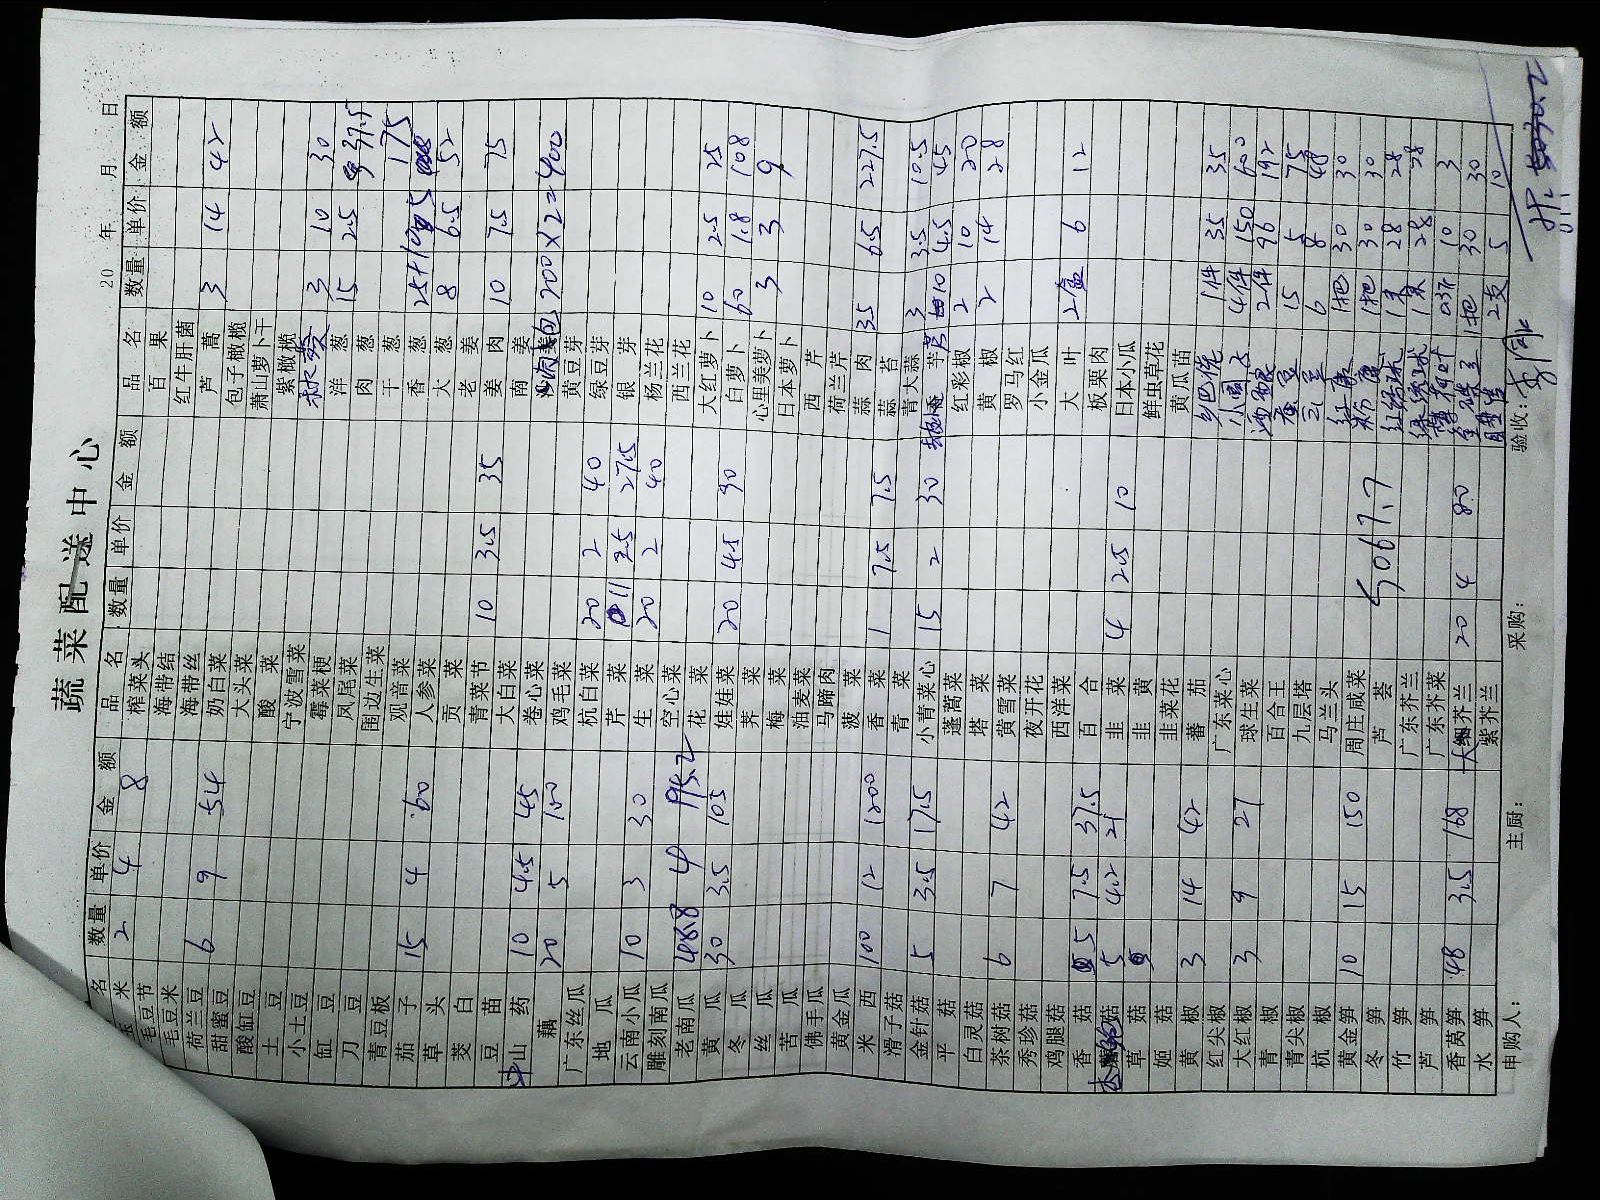 蔬菜配送中心
20 年 月 日
名 数量 单价 金额 品名 数量 单价 金额 品名 数量 单价 金额
米 2 4 8 榨菜头 百果
毛豆节 海带结 红牛肝菌
毛豆米 海带丝 芦蒿 3 14 42
荷兰豆 6 9 54 奶白菜 包子橄榄
甜蜜豆 大头菜 萧山萝卜干
酸豇豆 酸菜 紫橄榄
土豆 宁波雪菜
小土豆 霉菜梗 洋葱 3 10 30
豇豆 凤尾菜 肉葱 15 2.5 37.5
刀豆 围边生菜 干葱
青豆板 观音菜 香葱 25+10 5 175
茄子 15 4 60 人参菜 大葱 8 6.5 52
草头 贡菜 老姜
茭白 青菜节 10 3.5 35 姜肉 10 7.5 75
豆苗 大白菜 南姜
山药 10 4.5 45 卷心菜 200×2=400
藕 20 5 100 鸡毛菜 黄豆芽
广东丝瓜 杭白菜 20 2 40 绿豆芽
地瓜 芹菜 11 2.5 27.5 银芽
云南小瓜 10 3 30 生菜 20 2 40 杨兰花
雕刻南瓜 空心菜 西兰花
老南瓜 48.8 4 195.2 花菜 大红萝卜 10 2.5 25
黄瓜 30 3.5 105 娃娃菜 20 4.5 90 白萝卜 60 1.8 108
冬瓜 荠菜 心里美萝卜 3 3 9
丝瓜 梅菜 日本萝卜
苦瓜 油麦菜 西芹
佛手瓜 马蹄肉 荷兰芹
黄金瓜 菠菜 蒜肉 35 6.5 227.5
米西 100 12 1200 香菜 1 7.5 7.5 蒜苔
滑子菇 青菜 青大蒜 3 3.5 10.5
金针菇 5 3.5 17.5 小青菜心 15 2 30 芋艿 10 4.5 45
平菇 蓬蒿菜 红彩椒 2 10 20
白灵菇 塔菜 黄椒 2 14 28
茶树菇 6 7 42 黄雪菜 罗马红
秀珍菇 夜开花 小金瓜
鸡腿菇 西洋菜 大叶 2盒 6 12
香菇 5 7.5 37.5 百合 板栗肉
菇 5 4.2 21 韭菜 4 2.5 10 日本小瓜
草菇 韭黄 鲜虫草花
姬菇 韭菜花 黄瓜苗
黄椒 3 14 42 蕃茄
红尖椒 广东菜心 1件 35 35
大红椒 3 9 27 球生菜 4件 150 600
青椒 百合王 2件 96 192
青尖椒 九层塔 15 5 75
杭椒 马兰头 6 8 48
黄金笋 10 15 150 周庄咸菜 1把 30 30
冬笋 芦荟 1把 30 30
竹笋 广东芥兰 28 28
芦笋 广东芥菜 28 28
香莴笋 48 3.5 168 大细芥兰 20 4 80
水笋 紫芥兰 2支 5 10
5067.7
申购人： 主厨： 采购： 验收：